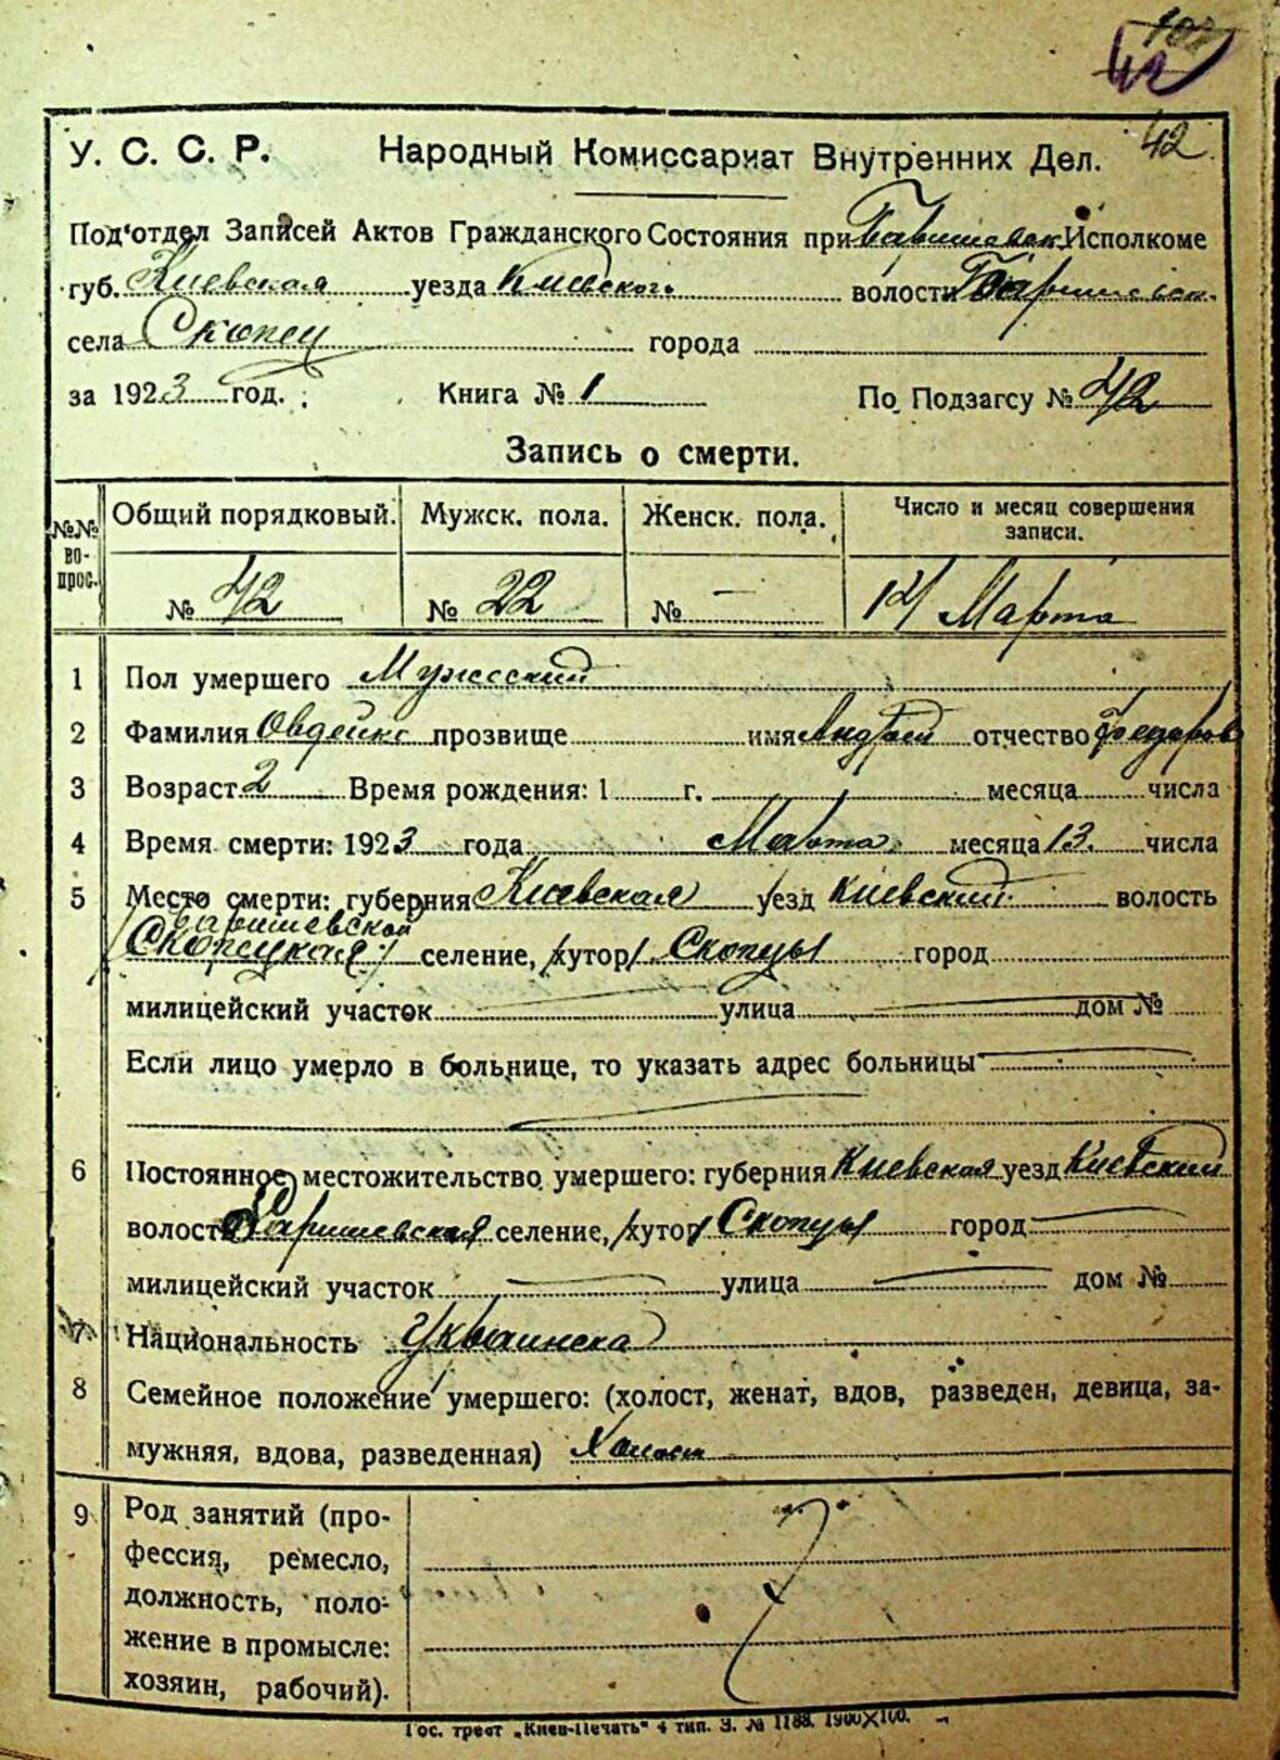 42
У. С. С. Р. Народный Комиссариат Внутренних Дел. 42.
Под'отдел Записей Актов Гражданского Состояния при Баришевск. Исполкоме
губ. Киевская уезда Киевского волости Баришевск.
села Скопец города
за 1923 год. Книга № 1 По Подзагсу № 42
Запись о смерти.
№№ во-прос. Общий порядковый. Мужск. пола. Женск. пола. Число и месяц совершения записи.
№ 42 № 22 № — 14/ Марта
1 Пол умершего Мужеский
2 Фамилия Овдейко прозвище имя Андрей отчество Федоров
3 Возраст 2 Время рождения: 1 г. месяца числа
4 Время смерти: 1923 года Марта месяца 13. числа
5 Место смерти: губерния Киевская уезд Киевский волость
Баришевской
/Скопецкая/ селение, /хутор/ Скопцы город
милицейский участок улица дом №
Если лицо умерло в больнице, то указать адрес больницы
6 Постоянное местожительство умершего: губерния Киевская уезд Киевский
волость Баришевская селение, /хутор/ Скопцы город
милицейский участок улица дом №
7 Национальность Украинска
8 Семейное положение умершего: (холост, женат, вдов, разведен, девица, за-
мужняя, вдова, разведенная) Холост
9 Род занятий (про-
фессия, ремесло,
должность, поло-
жение в промысле:
хозяин, рабочий).
Гос. трест „Киев-Печать" 4 тип. З. № 1188. 1900×100.